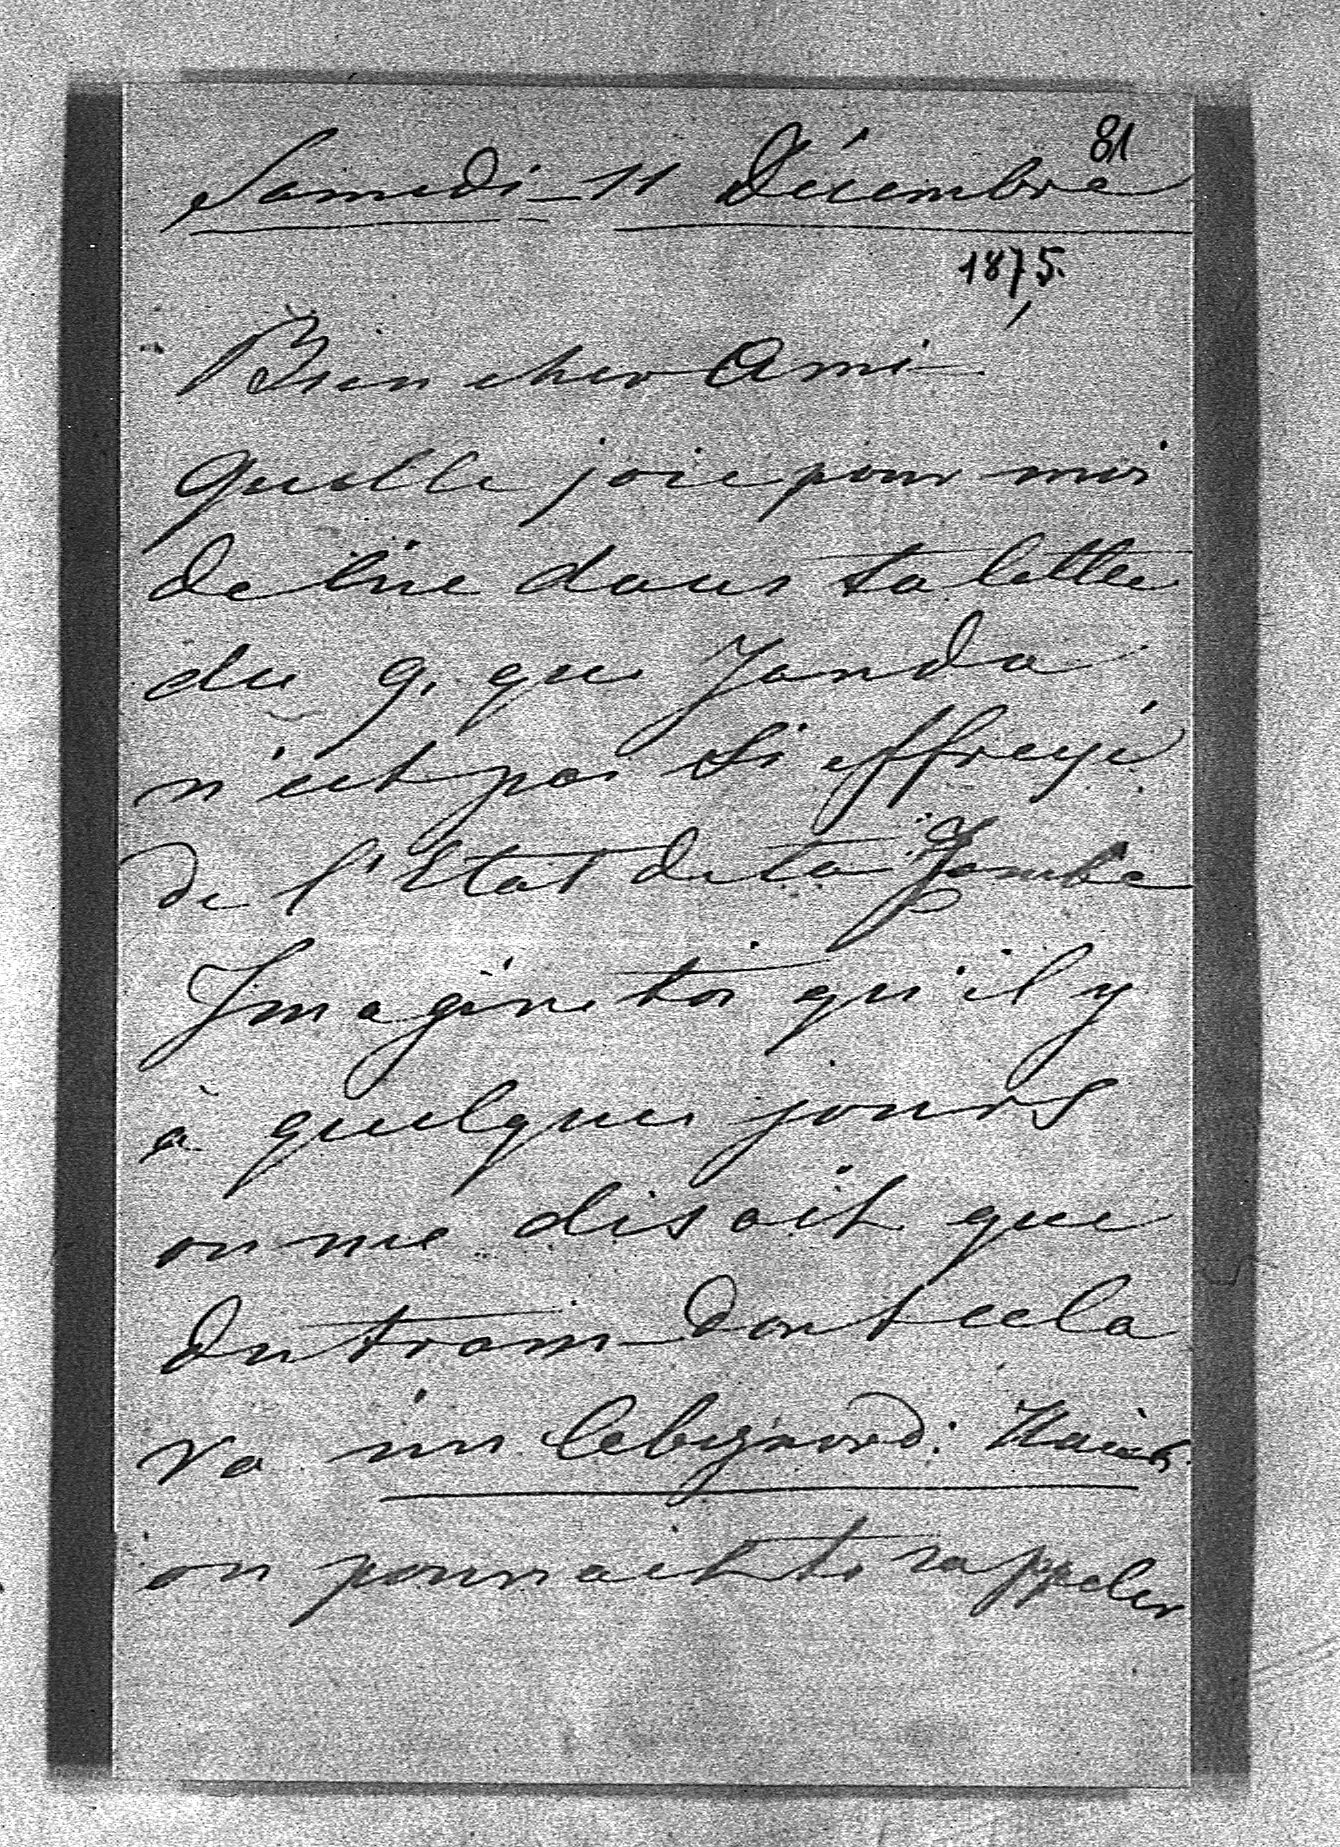 81
Samedi - 11 Décembre
1875.
Bien cher Ami
Quelle joie pour moi
de lire dans ta lettre
du 9, que Janda
n'est pas si effrayé
de l'Etat de ta Jambe
Imagine toi qu'il y
à quelques jours
on me disait que
du train dont cela
va
on pourrait te rappeler